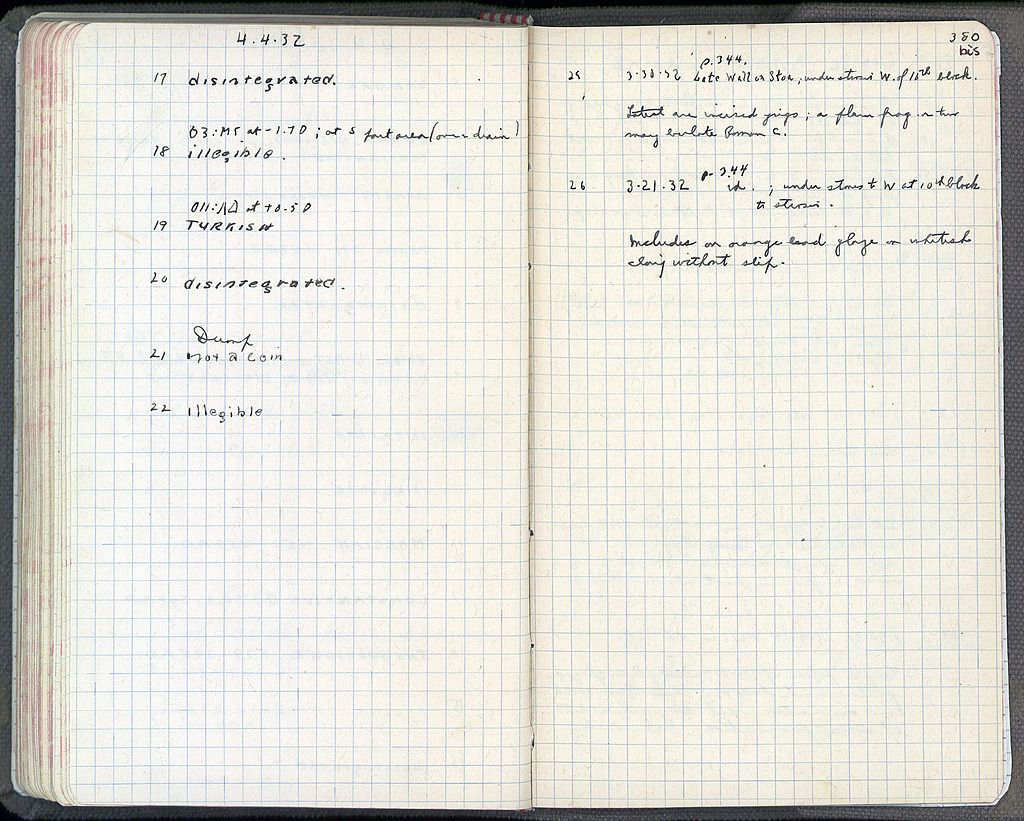 4.4.32
17 disintegrated.
at -1.70 ; at S part area (over drain)
18 illegible.
at +0.50
19 TURKISH
20 disintegrated.
Dump
21 not a coin
22 illegible
380
bis
p. 344.
25 3-30-32 Late Wall on Stoa, under stereo W. of 10th block.
Latest are incised jugs ; a
may be late Roman C.
p. 344
26 3-21-32 id. ; under stones to W at 10th block
to
Includes an orange lead glaze on whitish
clay without slip.